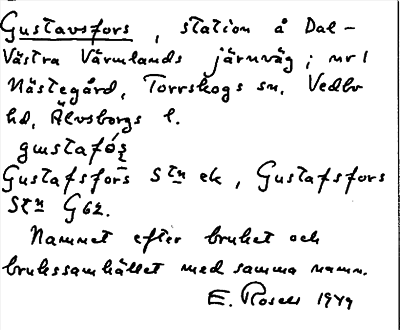 Gustavsfors, station å Dal-
Västra Värmlands järnväg; nr 1
Nästegård, Torrskogs sn, Vedbo
hd, Älvsborgs l.
gustafós
Gustafsfors Stn ek, Gustafsfors
Stn G62.
Namnet efter bruket och
brukssamhället med samma namn.
E. Rosell 1949